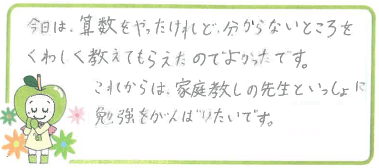 今日は、算数をやったけれど、分からないところを
くわしく教えてもらえたのでよかったです。
これからは、家庭教しの先生といっしょに
勉強をがんばりたいです。